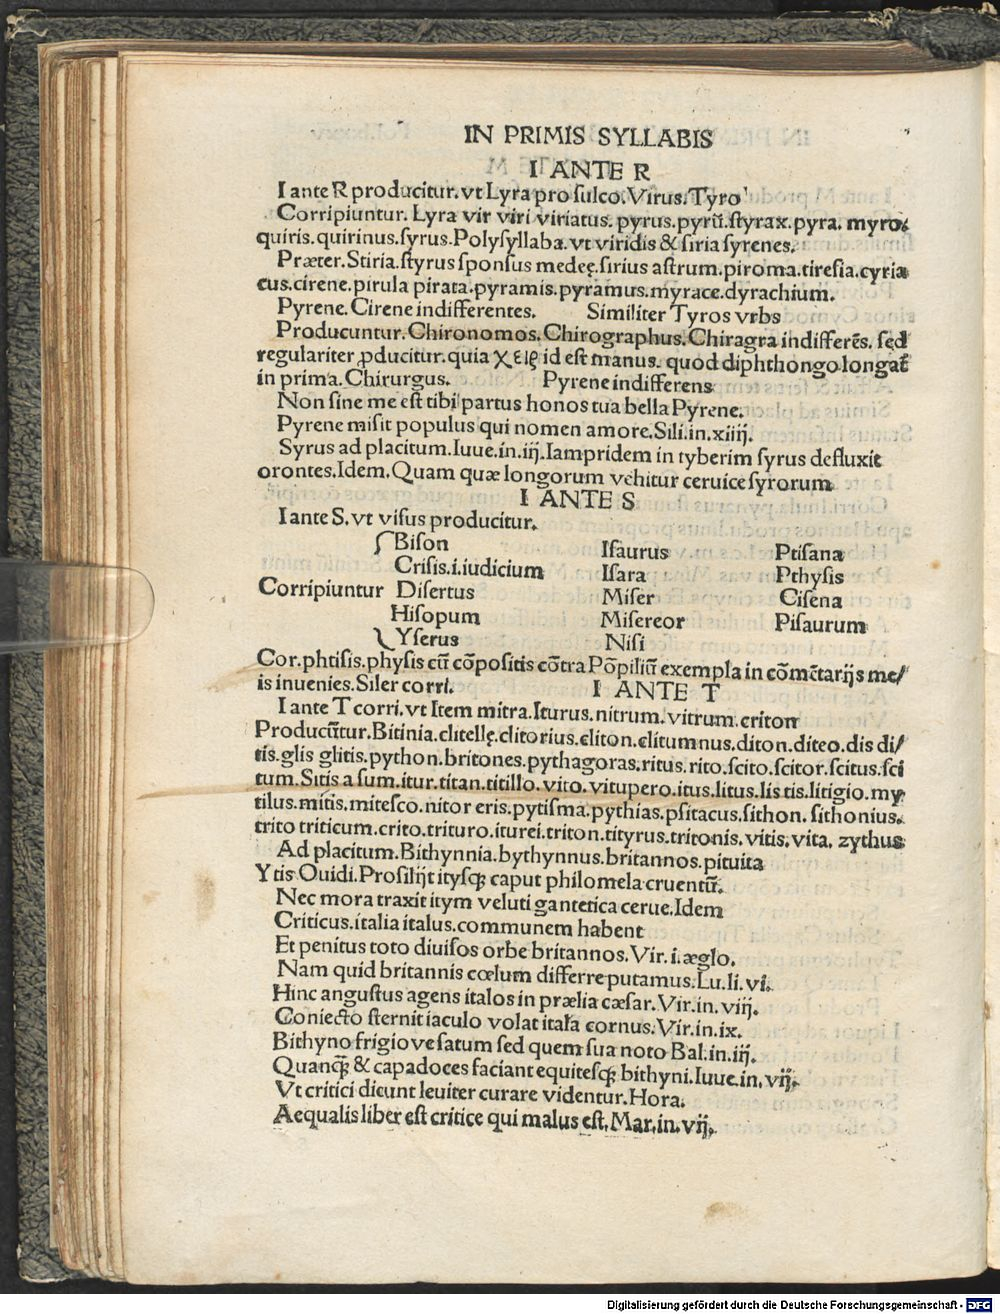 IN PRIMIS SYLLABIS
I ANTE R
I ante R producitur. vt Lyra pro sulco. Virus. Tyro
Corripiuntur. Lyra vir viri viriatus. pyrus. pyrū. styrax. pyra. myro.
quiris. quirinus. syrus. Polysyllaba. vt viridis & siria syrenes.
Præter. Stiria. styrus sponsus medeę. sirius astrum. piroma. tiresia. cyria
cus. cirene. pirula pirata. pyramis. pyramus. myrace. dyrachium.
Pyrene. Cirene indifferentes. Similiter Tyros vrbs
Producuntur. Chironomos. Chirographus. Chiragra indifferēs. sed
regulariter ꝓducitur. quia χειρ id est manus. quod diphthongo longat̄
in prima. Chirurgus. Pyrene indifferens
Non sine me est tibi partus honos tua bella Pyrene.
Pyrene misit populus qui nomen amore. Sili. in. xiiij.
Syrus ad placitum. Iuue. in. iij. Iampridem in tyberim syrus defluxit
orontes. Idem. Quam quæ longorum vehitur ceruice syrorum
I ANTE S
I ante S. vt visus producitur.
Bison Isaurus Ptisana
Crisis. i. iudicium Isara Pthysis
Corripiuntur Disertus Miser Cisena
Hisopum Misereor Pisaurum
Yserus Nisi
Cor. phtisis. physis cū cōpositis cōtra Pōpiliū exempla in cōmētarijs me/
is inuenies. Siler corri. I ANTE T
I ante T corri. vt Item mitra. Iturus. nitrum. vitrum. criton
Producūtur. Bitinia. clitellę. clitorius. cliton. clitumnus. diton. diteo. dis di/
tis. glis glitis. python. britones. pythagoras. ritus. rito. scito. scitor. scitus. sci
tum. Sitis a sum. itur. titan. titillo. vito. vitupero. itus. litus. lis tis. litigio. my
tilus. mitis. mitesco. nitor eris. pytisma. pythias. psitacus. sithon. sithonius.
trito triticum. crito. trituro. iturei. triton. tityrus. tritonis. vitis. vita. zythus
Ad placitum. Bithynnia. bythynnus. britannos. pituita
Ytis Ouidi. Prosilijt itysqꝫ caput philomela cruentū.
Nec mora traxit itym veluti gantetica cerue. Idem
Criticus. italia italus. communem habent
Et penitus toto diuisos orbe britannos. Vir. i. æglo.
Nam quid britannis cœlum differre putamus. Lu. li. vi.
Hinc angustus agens italos in prælia cæsar. Vir. in. viij.
Coniecto sternit iaculo volat itala cornus. Vir. in. ix.
Bithyno frigio ve satum sed quem sua noto Bal. in. iij.
Quanqꝫ & capadoces faciant equitesqꝫ bithyni. Iuue. in. vij.
Vt critici dicunt leuiter curare videntur. Hora.
Aequalis liber est critice qui malus est. Mar. in. vij.
Digitalisierung gefördert durch die Deutsche Forschungsgemeinschaft - DFG